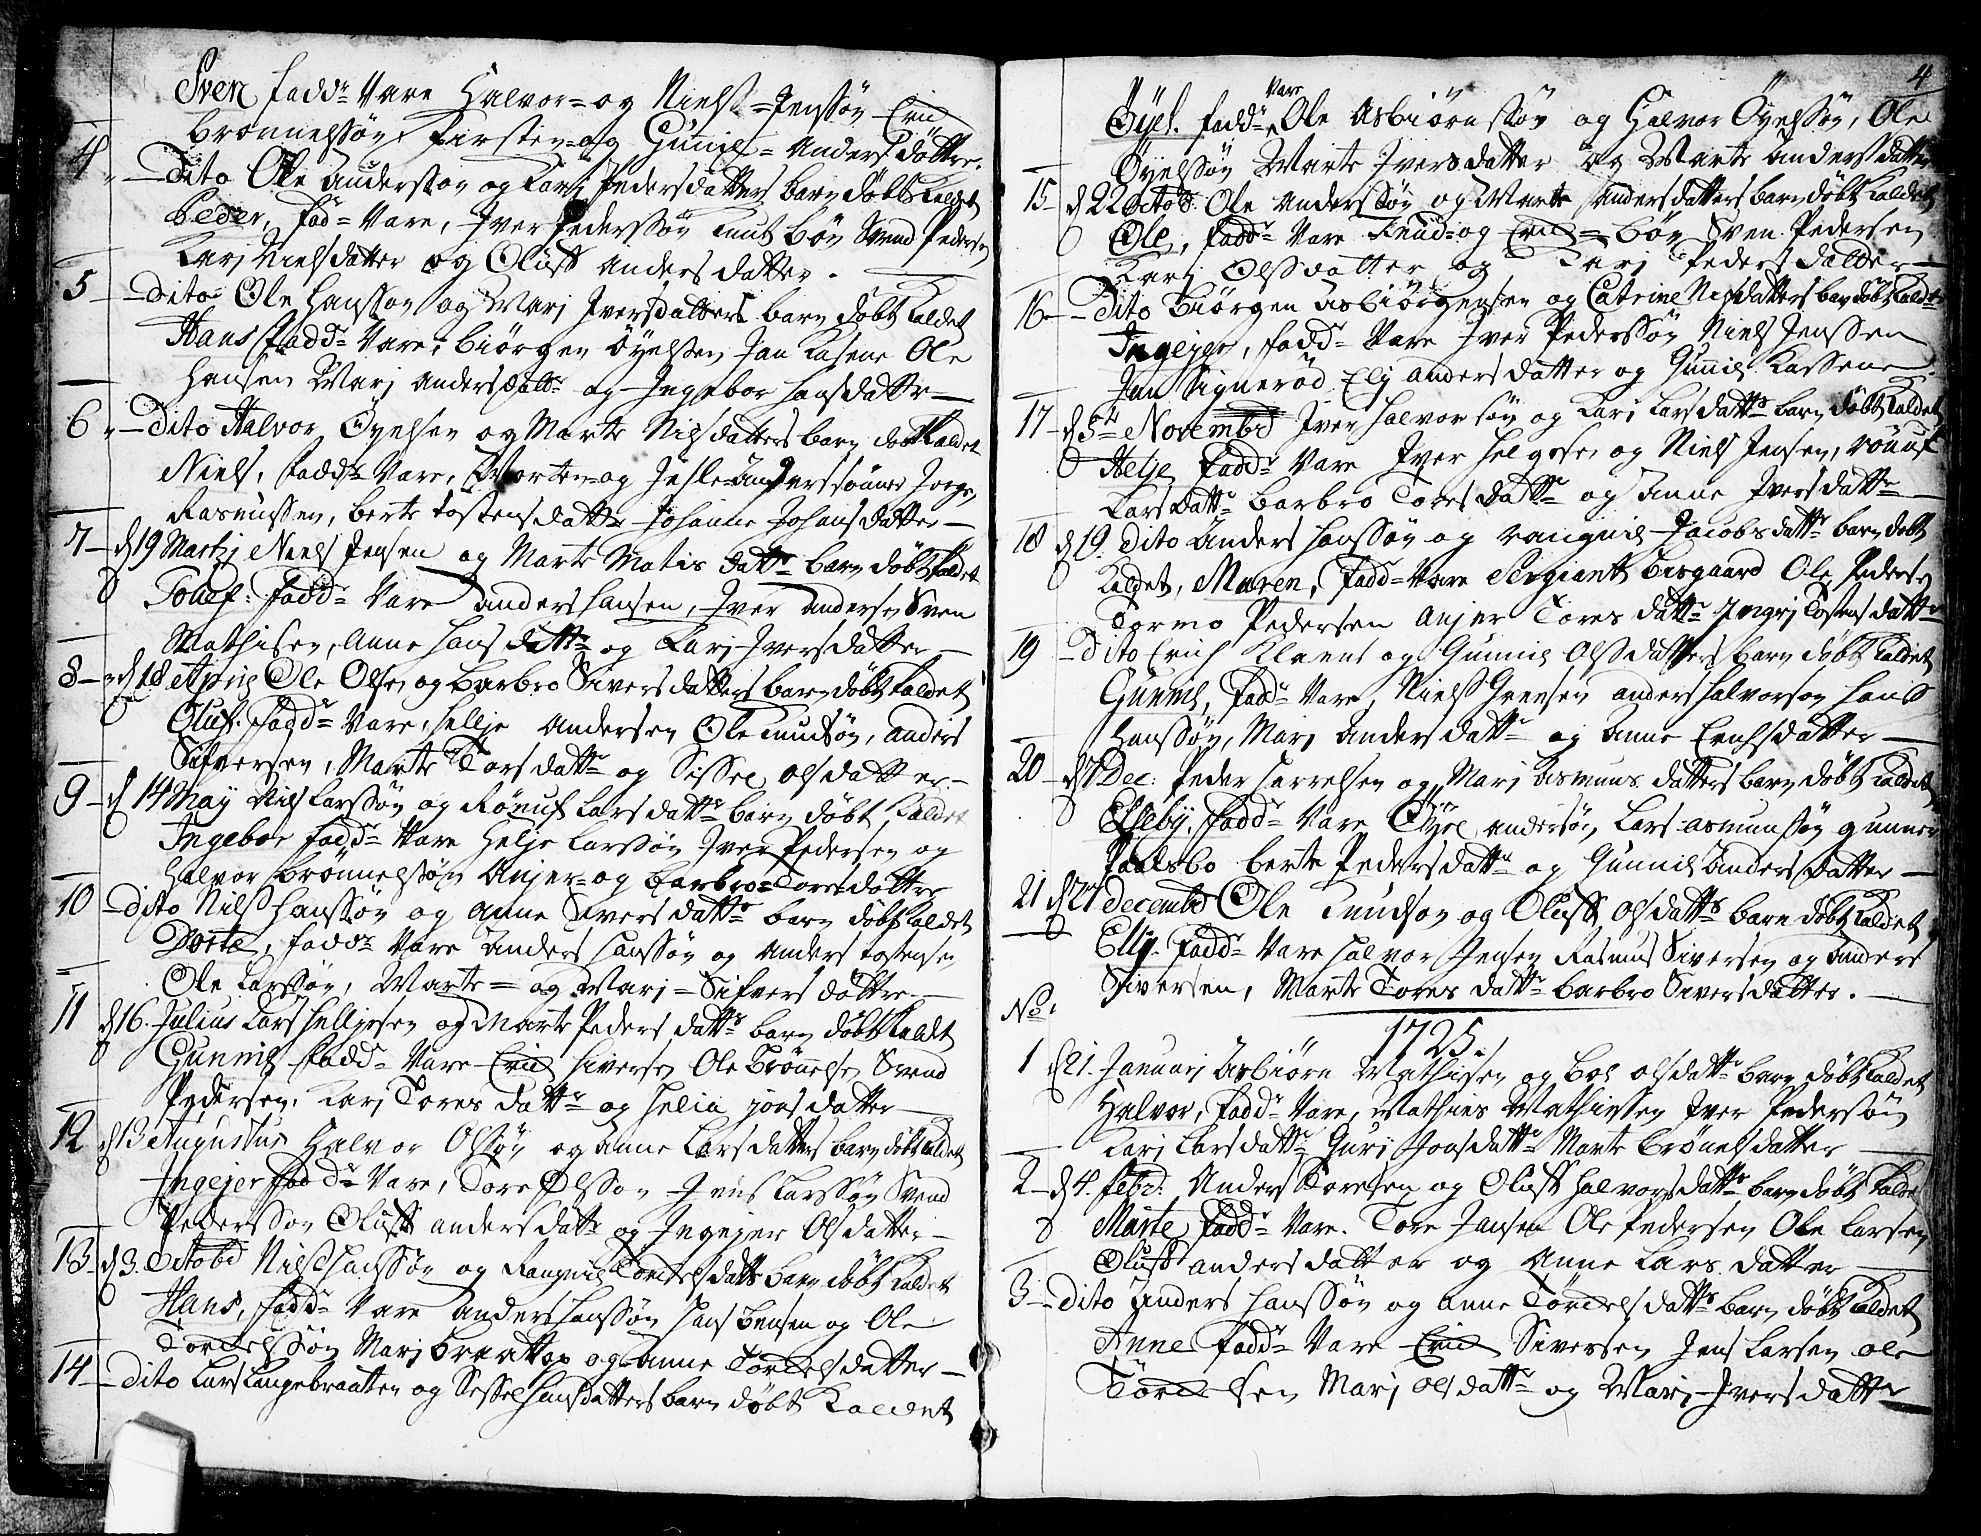 Sven fadd:r Vare Halvor= og Niels=Jenssøn Erich
Brønnelssøn, Kirsten= og Gunnil= Anders døttre.
4 — Dito Ole Anderssøn og Kari Pedersdatters barn døbt Kaldet
Peder, fad:r Vare, Iver Pedersøn Knut bøn Svend Pedersen
Kari Nielsdatter og Oluff Anders datter.
5 — Dito Ole Hanssøn og Mari Iversdatters barn døbt Kaldet
Hans fadd:r Vare, Biørgen Øyelsen Jan Kasene Ole
Hansen Mari Andersdatt:r og Ingebor Hansdatter —
6 — Dito Halvor Øyelsen og Marte Nilsdatters barn døbt Kaldet
Niels, fadd:r Vare, Morten= og Jesle=Anderssønner Jorgen
Rasmussen, Berte Tostensdatter Johanne Johansdatter —
7 — d 19 Martij Niels Jensen og Marte Matis datt:r barn døbt Kaldet
Tollef: fadd:r Vare Anders Hansen, Iver Andersen Sven
Mathisen, Anne Hans datt:r og Kari Iversdatter —
8 — d 18 April Ole Olsen og Barbro Sivers datters barn døbt Kaldet
Oluf. fadd:r Vare, Hellje Andersen Ole Knudsøn, Anders
Sifversen, Marte Tors datt:r og Sissel Olsdatter —
9 — d 14 May Nils Larssøn og Rønnuf Lars datt:r barn døbt Kaldet
Ingebor fadd:r Vare Helje Larssøn Iver Pedersen og
Halvor Brønnelssøn Anjer= og Barbro=Tores døttre
10 — Dito Nils Hanssøn og Anne Sivers datt:r barn døbt Kaldet
Dorte, fadd:r Vare Anders Hanssøn og Anders Tostensen
Ole Larssøn, Marte= og Mari=Sifvers døttre —
11 d 16. Julius Lars Helljesen og Marte Peders datt:rs barn døbt Kaldt
Gunnil fadd:r Vare Erich Siversen Ole Brønnelsen Svend
Pedersen. Kari Tores datt:r og Helia Jons datter —
12 d 13 Augustus Halvor Olssøn og Anne Larsdatters barn døbt Kaldet
Ingejer fadd:r Vare, Tore Olsson Jens Larssøn Svend
Pederssøn Oluff anders datt:r og Ingejer Olsdatter —
13 — d 3. Octobr Nils Hanssøn og Rangnil Tordels datt:rs barn døbt Kaldet
Hans, fadd:r Vare Anders Hanssøn Hans Bensen og Ole
Tordelssøn Mari Braattop og Anne Tordels datter —
14 — Dito Lars Langebraatten og Sessel Hansdatters barn døbt Kaldet
4
Øyel. fadd:r Vare Ole Asbiørnssøn og Halvor Øyelssøn, Ole
Øyelssøn Marte Iversdatter og Marte Andersdatter
15 — d 22 Octob. Ole Anderssøn og Marte Andersdatters barn døbt Kaldet
Ole, fadd:r Vare Knud= og Erich= bøn Sven Pedersen
Kari Olssdatter og Kari Peders datter —
16 — Dito Biørgen Asbiørgensen og Catrine Nilsdatters barn døbt Kaldet
Ingejer, fadd:r Vare Iver Pederssøn Niels Jenssen
Jan Signerød Elj Andersdatter og Gunnil Kassene
17 — d 5te Novembr Iver Halvorssøn og Kari Larsdatt:rs barn døbt Kaldet
Helje fadd:r Vare Iver Helgesen og Niels Jensen, Rønnuf
Larsdatt:r Barbro Toresdatt:r og Anne Iversdatt:r
18 d 19. Dito Anders Hanssøn og Rangnil Jacobsdatt:r barn døbt
Kaldet, Maren, fadd:r Vare Sergiant Bisgaard Ole Pedersen
Tormo Pedersen Anjer Tores datt:r Ingrj Tostensdatt:r
19 — Dito Erich Klaens og Gunnil Olssdatters barn døbt Kaldet
Gunnil, fadd:r Vare, Niels Jensen Anders Halvorsøn Hans
Hanssøn, Mari Andersdatt:r og Anne Erichsdatter —
20 — d 7 Dec: Peder Harrelsen og Mari Asmuns datters barn døbt Kaldet
Elseby, fadd:r Vare Øyel Andersøn, Lars Asmunssøn Gunner
Paalsbo Berte Pedersdatt:r og Gunnil Anders datter —
21 d 27 Decembr Ole Knudsøn og Oluff Olsdatt:rs barn døbt Kaldet
Elly. fadd:r Vare Halvor Jensen Rasmus Siversen og Anders
Siversen, Marte Tores datt:r Barbro Siversdatter. —
No:
1725.
1 d 21. Januarj Asbiørn Mathisen og Boel Olsdatt:r barn døbt Kaldet
Halvor, fadd:r Vare, Mathies Mathiessen Iver Pederssøn
Kari Larsdatt:r Guri Jonsdatt:r Marte Brønelsdatter —
2 — d 4. Febr. Anders Toresen og Oluff Halvorsdatt:r barn døbt Kaldet
Marte fadd:r Vare. Tore Jansen Ole Pedersen Ole Larsen
Oluff andersdatter og Anne Lars datter —
3 — Dito Anders Hanssøn og Anne Tordels datt:rs barn døbt Kaldet
Anne fadd:r Vare Erich Siversen Jens Larsen Ole
Tordelsen Mari Olsdatt:r og Mari Iversdatt:r